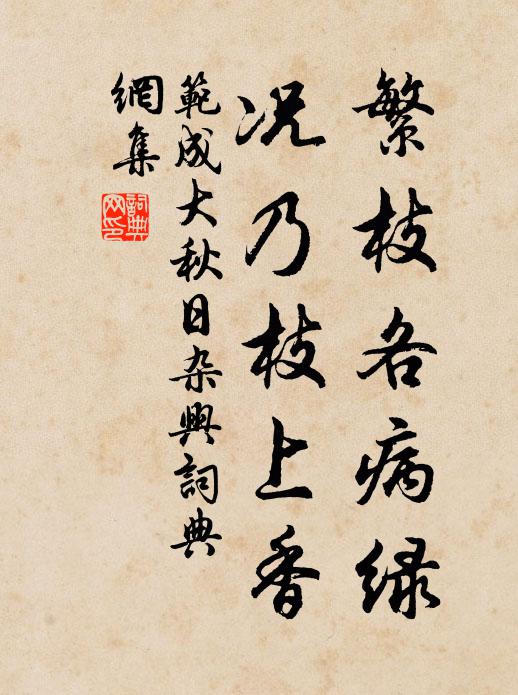 繁枝各病绿
况乃枝上香
範成大秋日杂興詞典
網集
詞典
网印